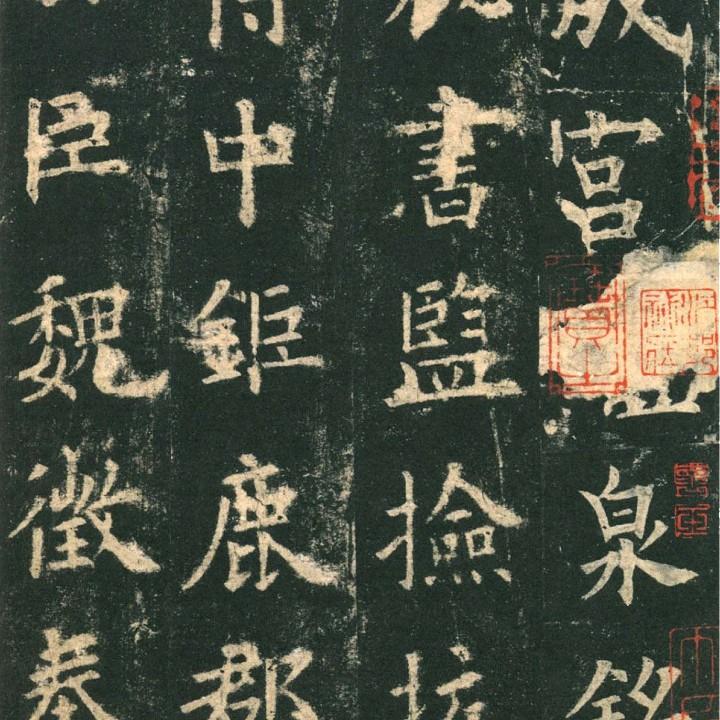 成宮泉銘
書監撿挍
侍中鉅鹿郡
臣魏徵奉